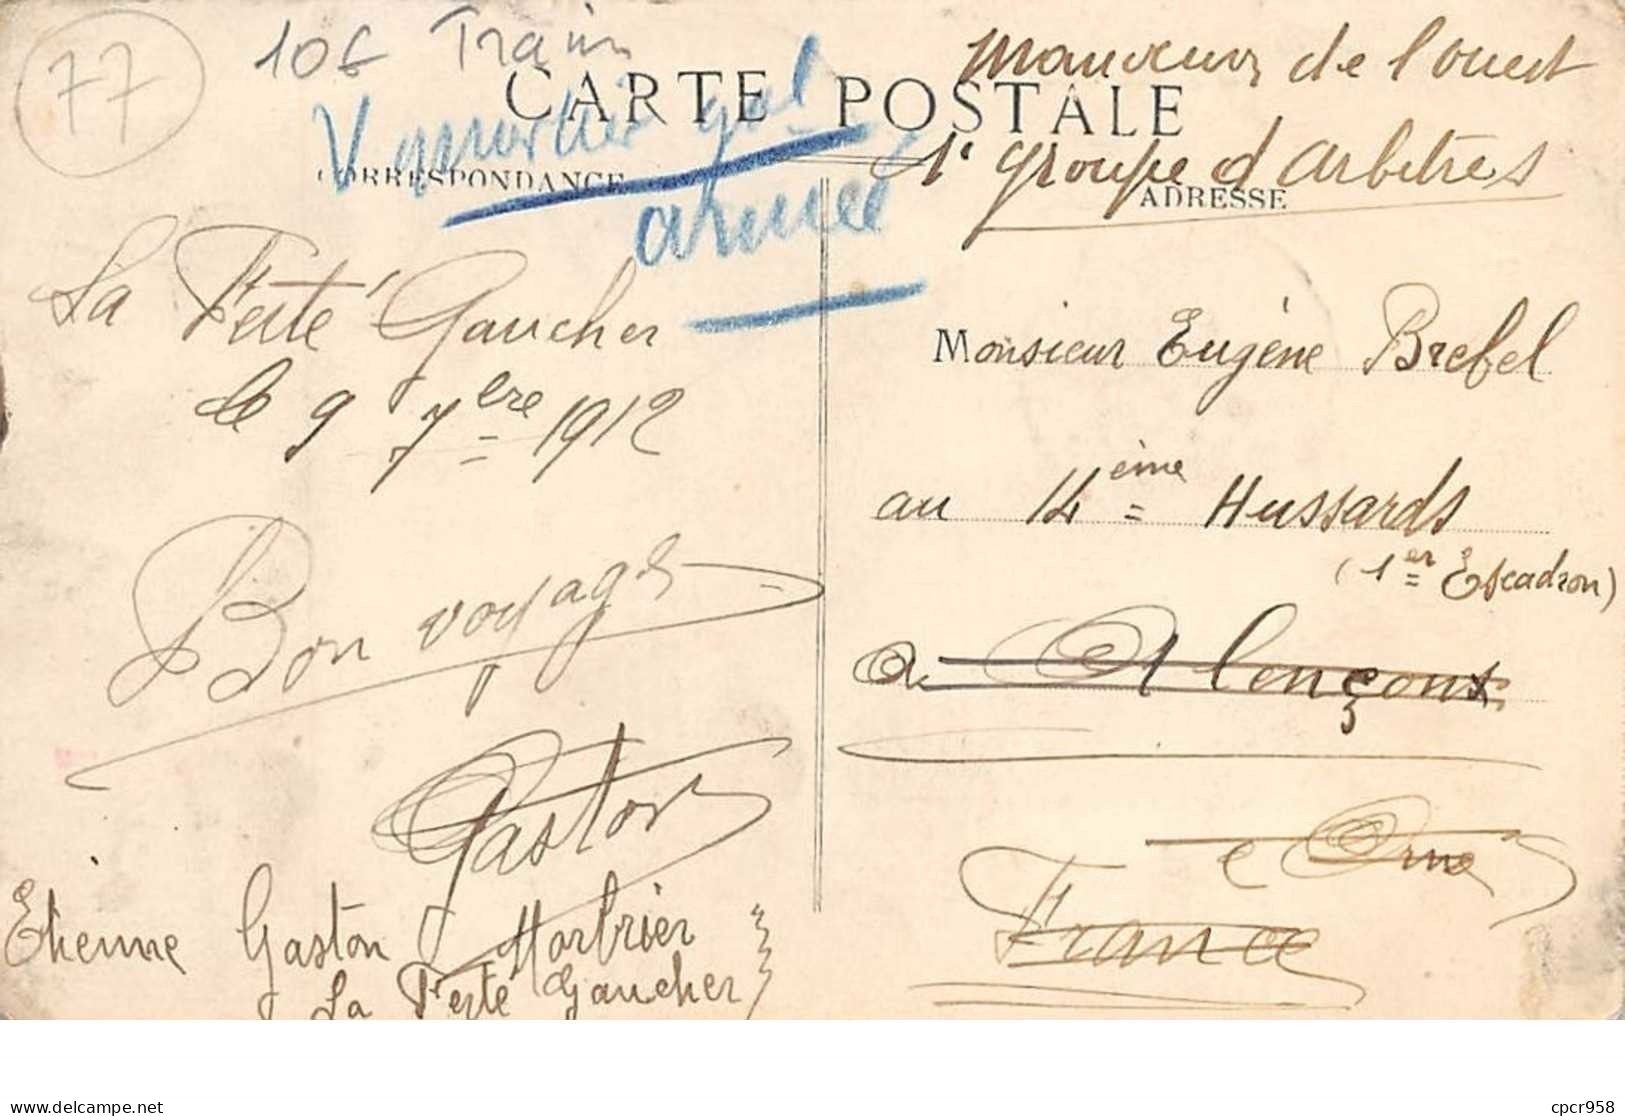 77
106 Train
CARTE POSTALE
CORRESPONDANCE
armée
Manœuvres de l'ouest
1er Groupe d'arbitres
ADRESSE
La Ferté Gaucher
le 9 7bre 1912
Bon voyage
Gaston
Etienne Gaston Morbrier
La Ferté Gaucher
Monsieur Eugène Brebel
au 14ème Hussards
(1er Escadron)
a Alençon
Orne
France
delcampe.net
cpcr958